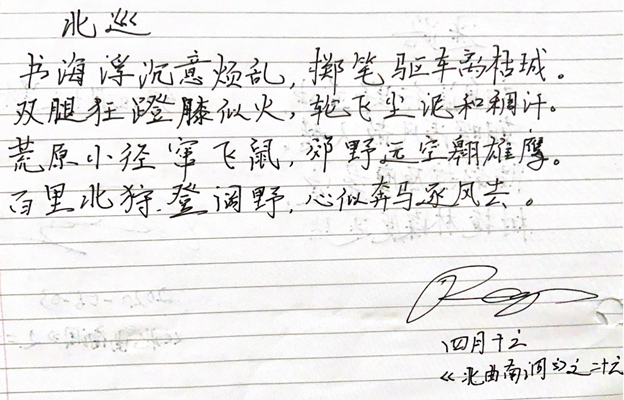 北巡
书海浮沉意烦乱，掷笔驱车离枯城。
双腿狂蹬膝似火，轮飞尘泥和稠汗。
荒原小径窜飞鼠，郊野远空翱雄鹰。
百里北狩登调野，心似奔马逐风去。
四月十之
《北曲南调》之二十六